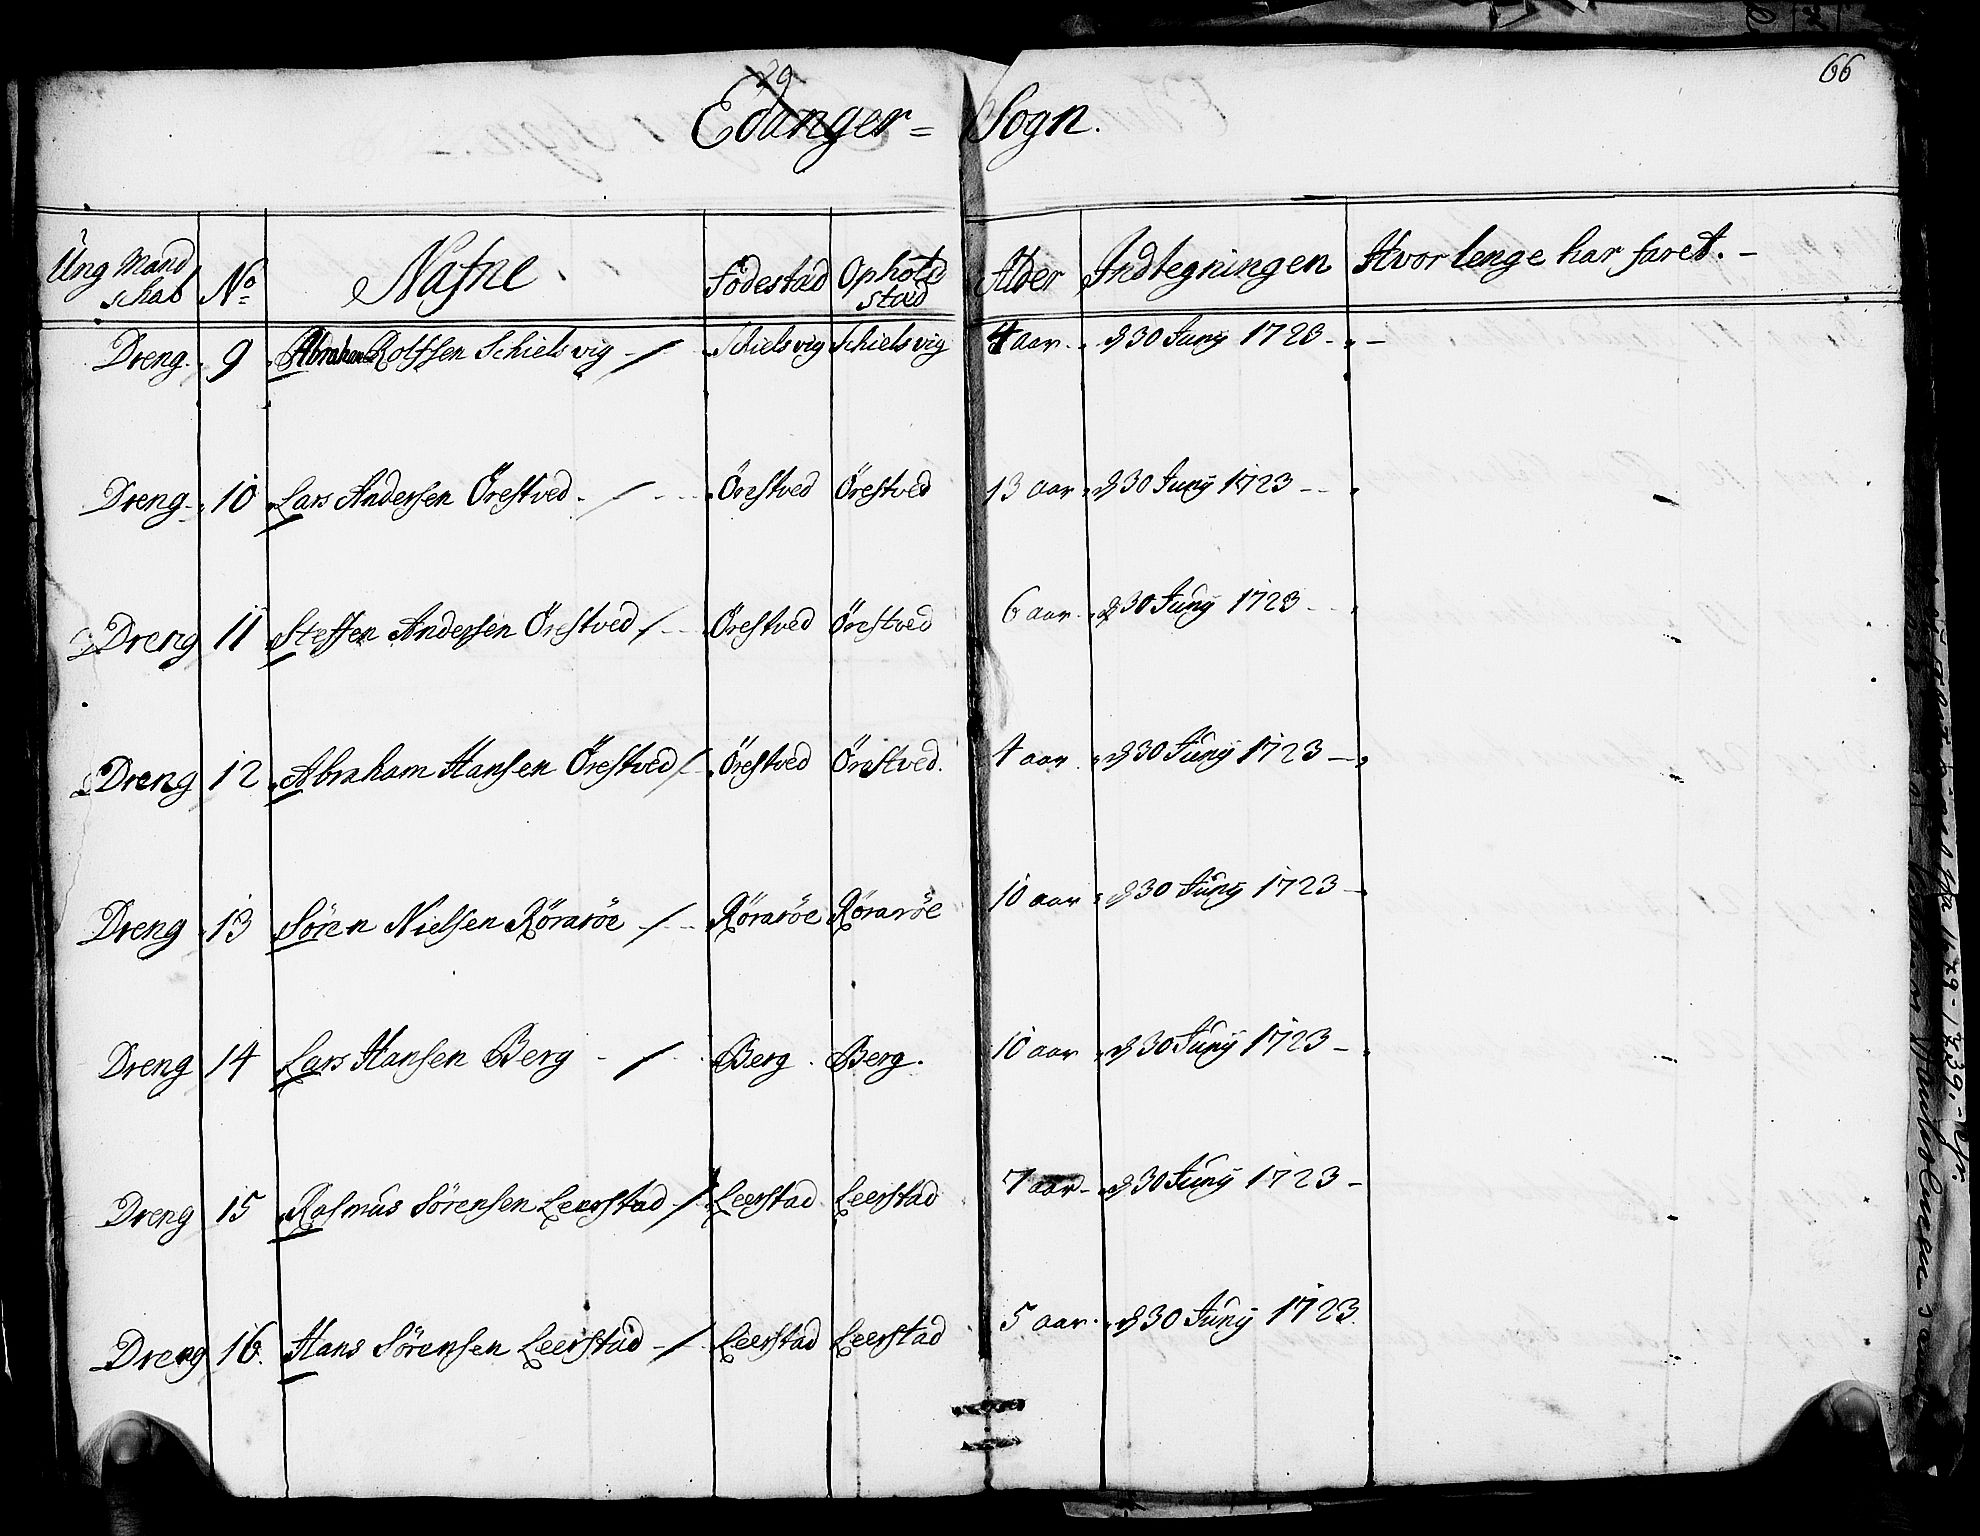 29
66
Edanger = Sogn.
Ung Mand schab No Nafne Födestad Opholtz stæd Alder Indtegningen Hvor lenge har faret. -
Dreng. 9 Abraham Rolfsen Schielsvig - / Schielsvig Schielsvig 4 aar. d 30 Junÿ 1723 -
Dreng 10 Lars Andersen Örestved - / Örestved Örestved 13 aar d 30 Junÿ 1723 - -
Dreng 11 Steffen Andersen Örestved / Örestved Örestved 6 aar d 30 Junÿ 1723 - -
Dreng 12 Abraham Hansen Örestved / Örestved Örestved. 4 aar d 30 Junÿ 1723 -
Dreng 13 Sören Nielsen Röraröe - / Röraröe Röraröe 10 aar d 30 Junÿ 1723 -
Dreng 14 Lars Hansen Berg - / Berg Berg. 10 aar d 30 Junÿ 1723 -
Dreng 15 Rasmus Sörensen Leerstad - / Leerstad Leerstad 7 aar - d 30 Junÿ 1723 -
Dreng 16. Hans Sörensen Leerstad - / Leerstad Leerstad 5 aar. d 30 Junÿ 1723.